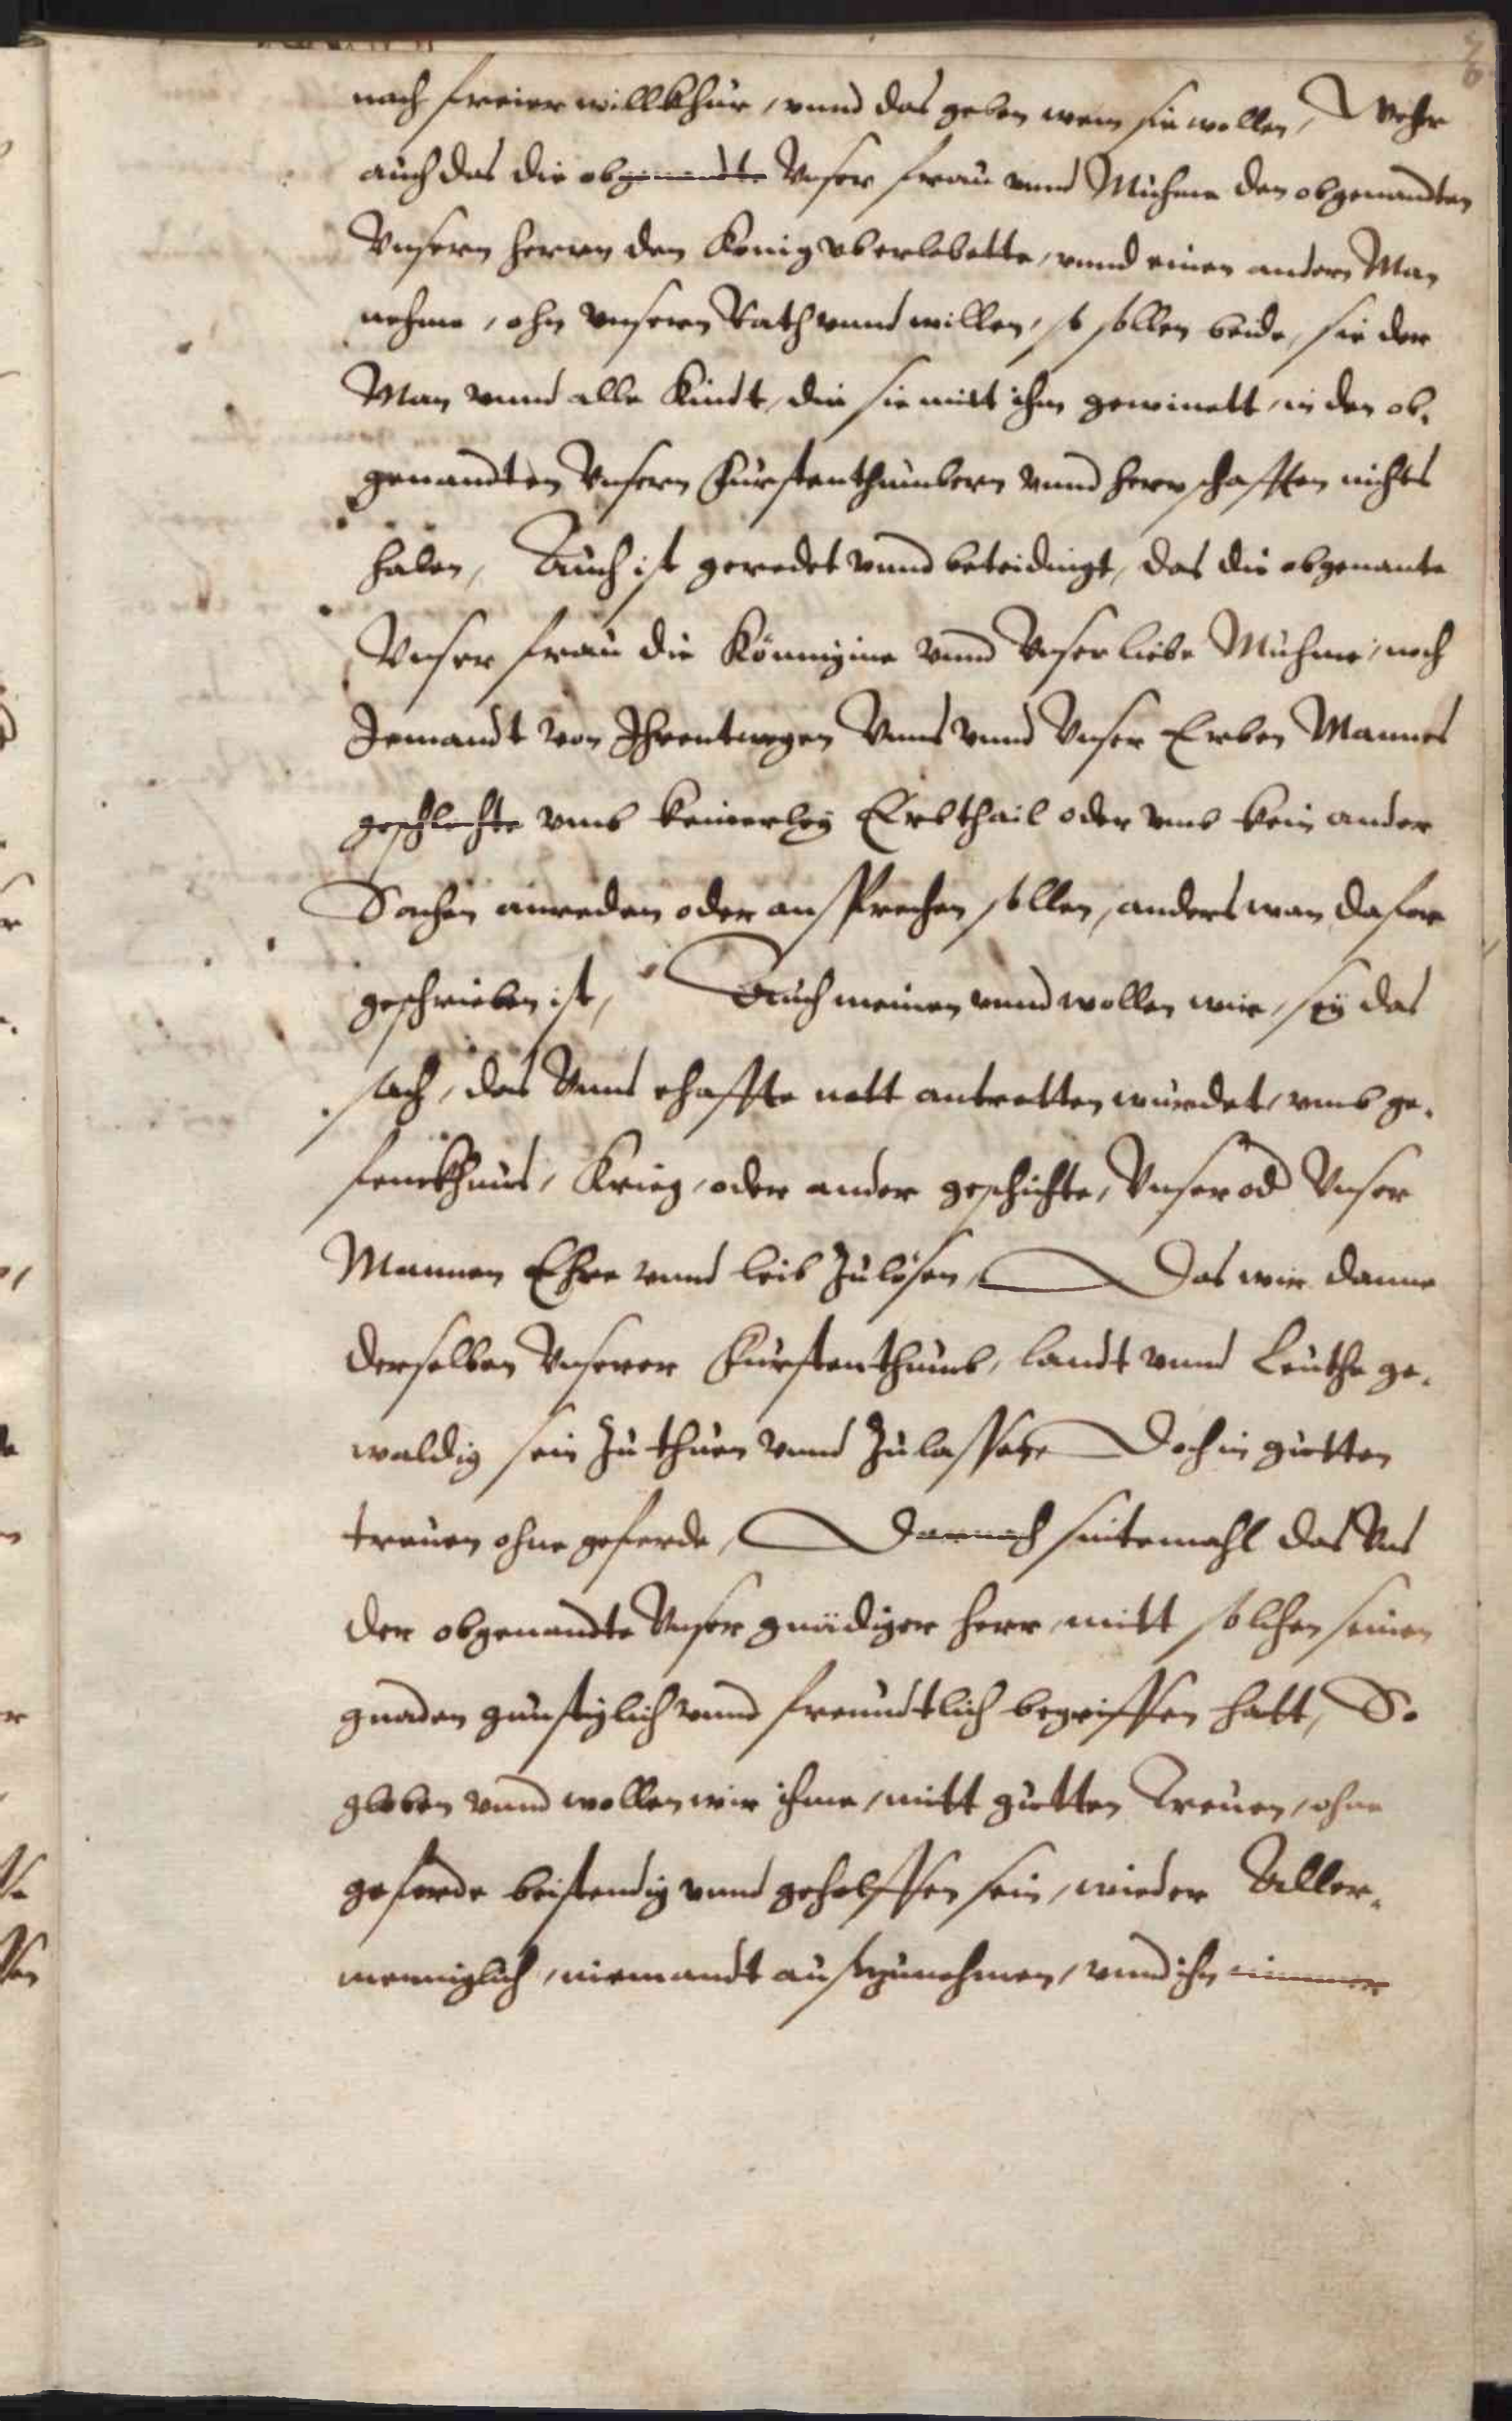 nach freier willkhür, vnnd das geben wem sie wollen, Wehr
auch das die obgenandte Vnser frau vnnd Muhme den obgenandten
Vnsern herrn den König vberlebette, vnnd einen andern Man
nehme, ohn vnsern Rath vnnd willen, so sollen beide, sie der
Man vnnd alle Kindt, die sie mitt ihm gewinett, in den ob-
genandten Vnsern Fürstenthümbern vnnd herrschafften nichts
haben, Auch ist geredet vnnd beteidingt, das die obgenante
Vnser frau die Könnigine vnnd Vnser liebe Muhme, noch
Jemandt von Ihrentwegen Vnns vnnd Vnser Erben Mannes
geschlechte vmb keinerley Erbthail oder vmb kein ander
Sachen anreden oder ansprechen sollen, anders wan dafor
geschrieben ist, Auch meinen vnnd wollen wir, sey das
sach, das Vnns ehaffte nott antretten würdet, vmb ge-
fenckhnüs, Krieg, oder ander geschichte, Vnser od Vnser
Mannen Ehre vnnd leib zu lösen, Das wir danne
derselben Vnserer Fürstenthumb, landt vnnd Leuthe ge-
waldig sein zu thuen vnnd zu lassen, Doch in gutten
treuen ohne geferde, Darnach sintemahl das Vns
der obgenandte Vnser gnädiger herr mitt solchen seinen
gnaden günstiglich vnnd freundtlich begriffen hatt, So
globen vnnd wollen wir ihme, mitt gutten Treuen, ohne
geferde beistendig vnnd geholffen sein, wieder Aller-
menniglich, niemandt auszunehmen, vnnd ihn nimmer